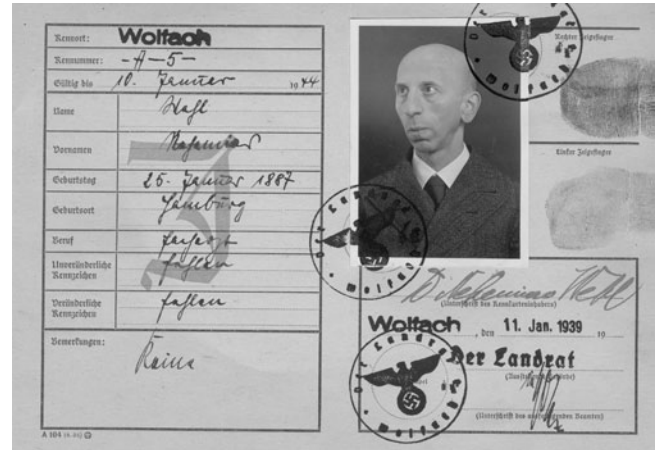 Kennort: Wolfach
Kennummer: -A-5-
Gültig bis 10. Januar 1944
Name Wahl
Vornamen Nehemias
Geburtstag 25. Januar 1887
Geburtsort Hamburg
Beruf
Unveränderliche Kennzeichen fehlen
Veränderliche Kennzeichen fehlen
Bemerkungen: Keine
J
A 104
Rechter Zeigefinger
Linker Zeigefinger
Dr. Nehemias Wahl
(Unterschrift des Kennkarteninhabers)
Wolfach, den 11. Jan. 1939 19
Der Landrat
(Unterschrift des ausfertigenden Beamten)
Der Landrat Wolfach
Der Landrat Wolfach
Der Landrat Wolfach